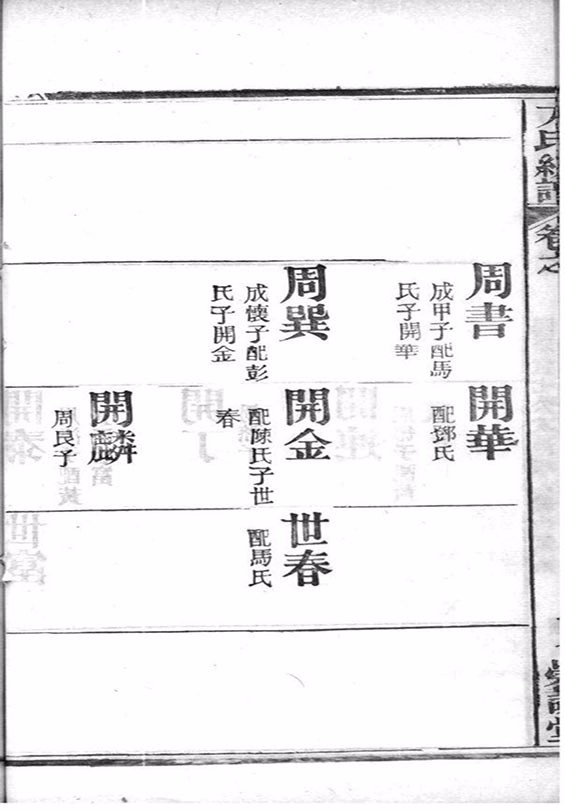 周書
成甲子配馬
氏子開華
周巽
成懷子配彭
氏子開金
開華
配鄧氏
開金
配陳氏子世
春
開麟
周良子
世春
配馬氏